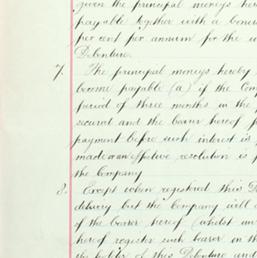 given the principal moneys her
payable together with a bonus
per cent per annum for the u
Debenture.
7. The principal moneys hereby
become payable (a) if the Comp
period of three months in the p
secured and the bearer hereof
payment before such interest is
made or an effective resolution is p
the Company
8. Except when registered this D
delivery but the Company will
of the bearer hereof (whilst un
hereof register such bearer in th
the holder of this Debenture and